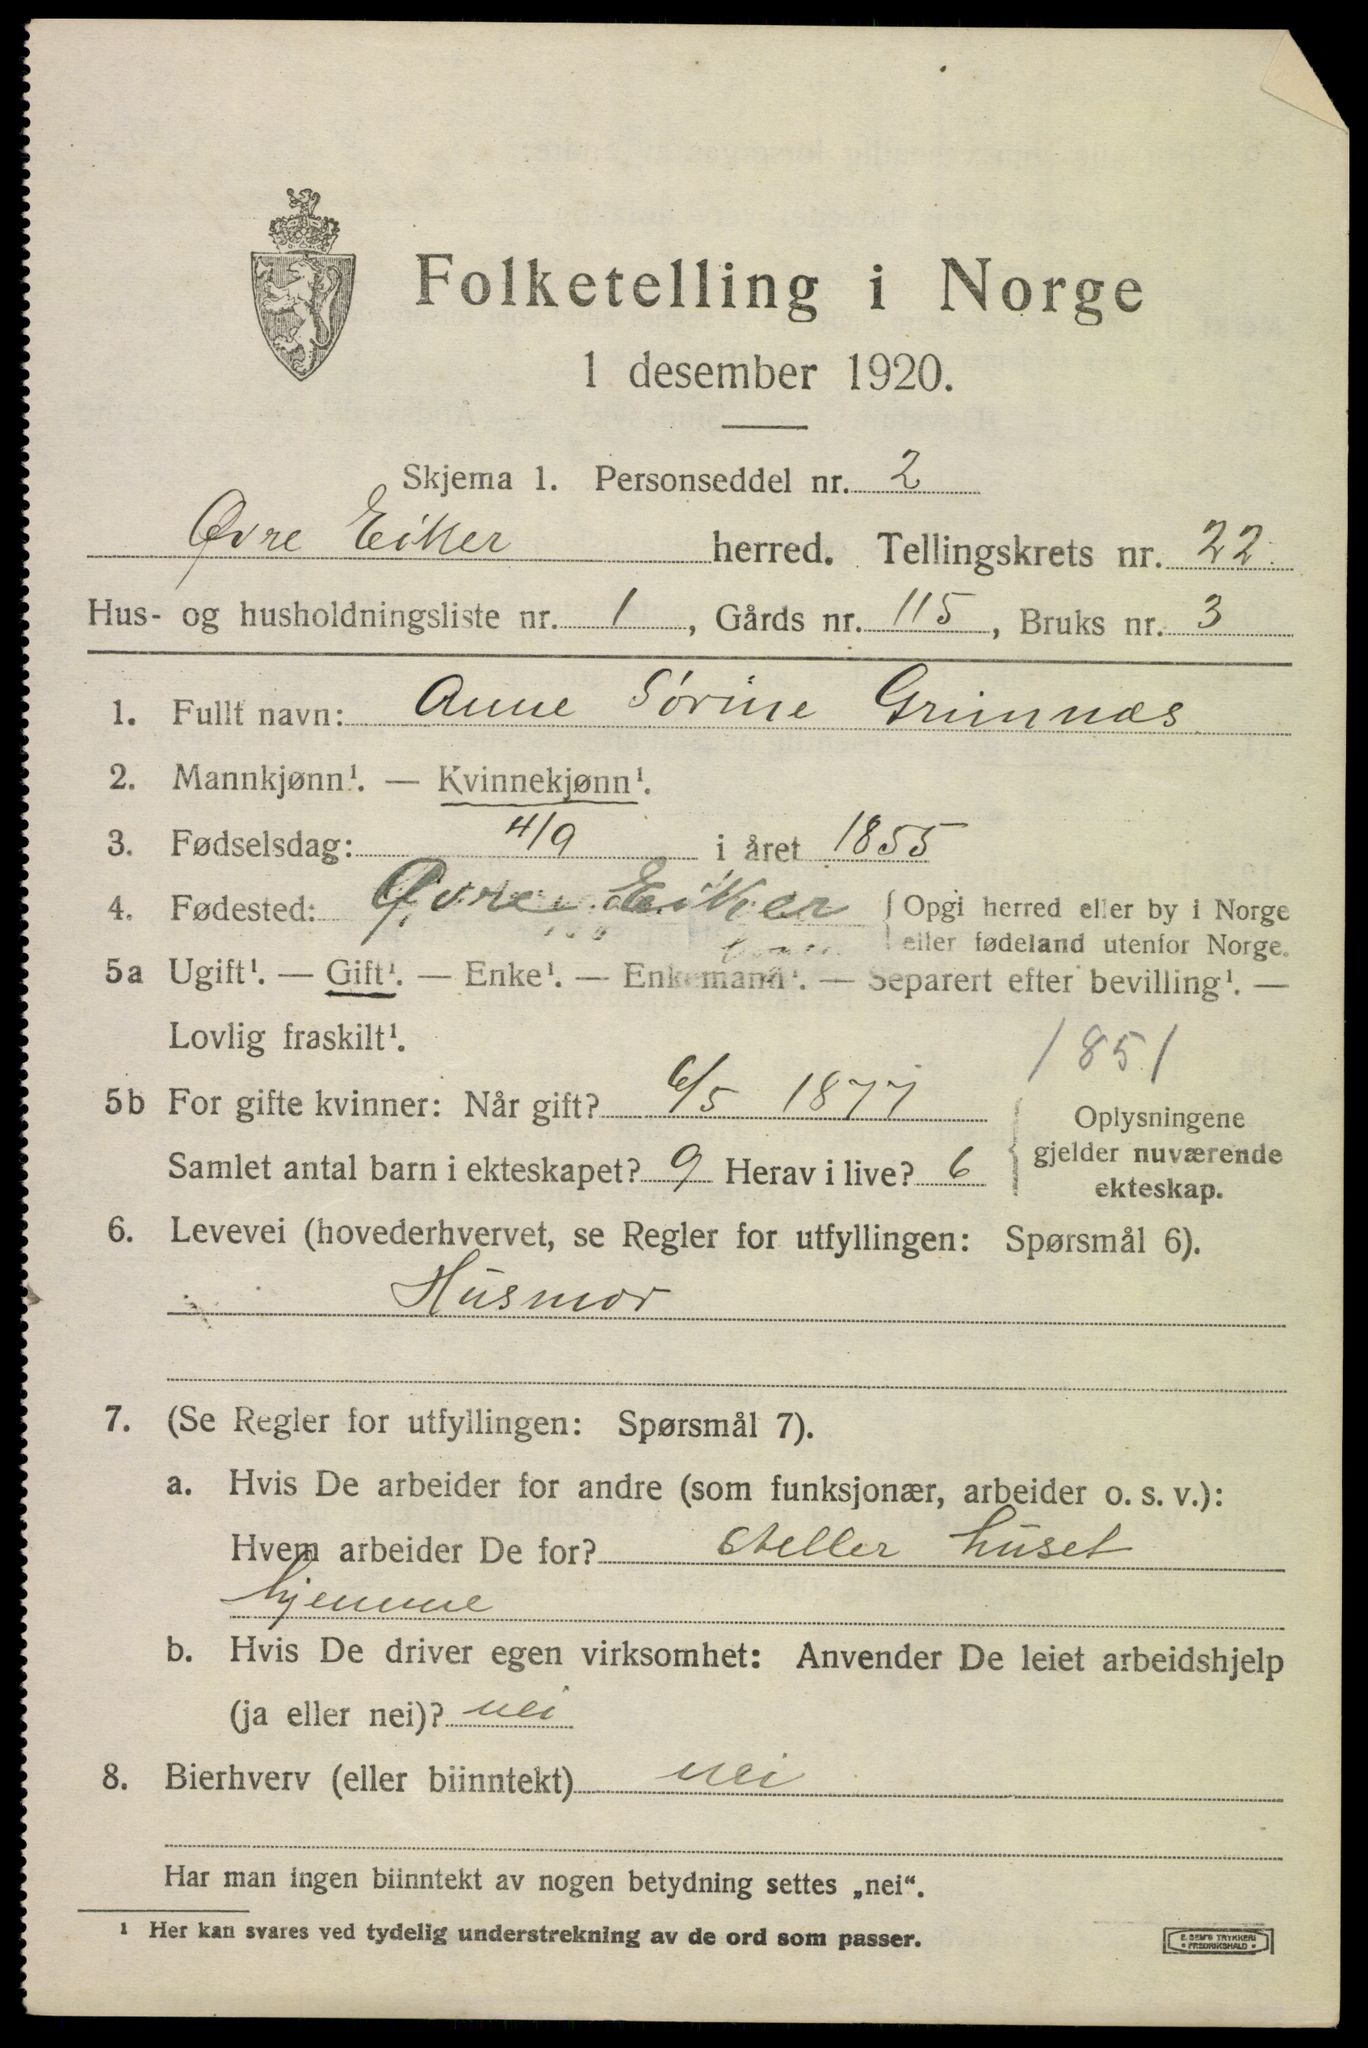 Folketelling i Norge
1 desember 1920.
Skjema 1. Personseddel nr. 2
Øvre Eiker herred. Tellingskrets nr. 22.
Hus- og husholdningsliste nr. 1, Gårds nr. 115, Bruks nr. 3
1. Fullt navn: Anne Sørine Grimnæs
2. Mannkjønn¹. — Kvinnekjønn¹.
3. Fødselsdag: 4/9 i året 1855
4. Fødested: Øvre Eiker { Opgi herred eller by i Norge
eller fødeland utenfor Norge.
5a Ugift¹. — Gift¹. — Enke¹. — Enkemann¹. — Separert efter bevilling¹. —
Lovlig fraskilt¹.
1851
5b For gifte kvinner: Når gift? 6/5 1877
Samlet antal barn i ekteskapet? 9 Herav i live? 6
{ Oplysningene
gjelder nuværende
ekteskap.
6. Levevei (hovederhvervet, se Regler for utfyllingen: Spørsmål 6).
Husmor
7. (Se Regler for utfyllingen: Spørsmål 7).
a. Hvis De arbeider for andre (som funksjonær, arbeider o. s. v.):
Hvem arbeider De for? steller huset
hjemme
b. Hvis De driver egen virksomhet: Anvender De leiet arbeidshjelp
(ja eller nei)? nei
8. Bierhverv (eller biinntekt) nei
Har man ingen biinntekt av nogen betydning settes „nei“.
¹ Her kan svares ved tydelig understrekning av de ord som passer.
E. SEM'S TRYKKERI
• FREDRIKSHALD •